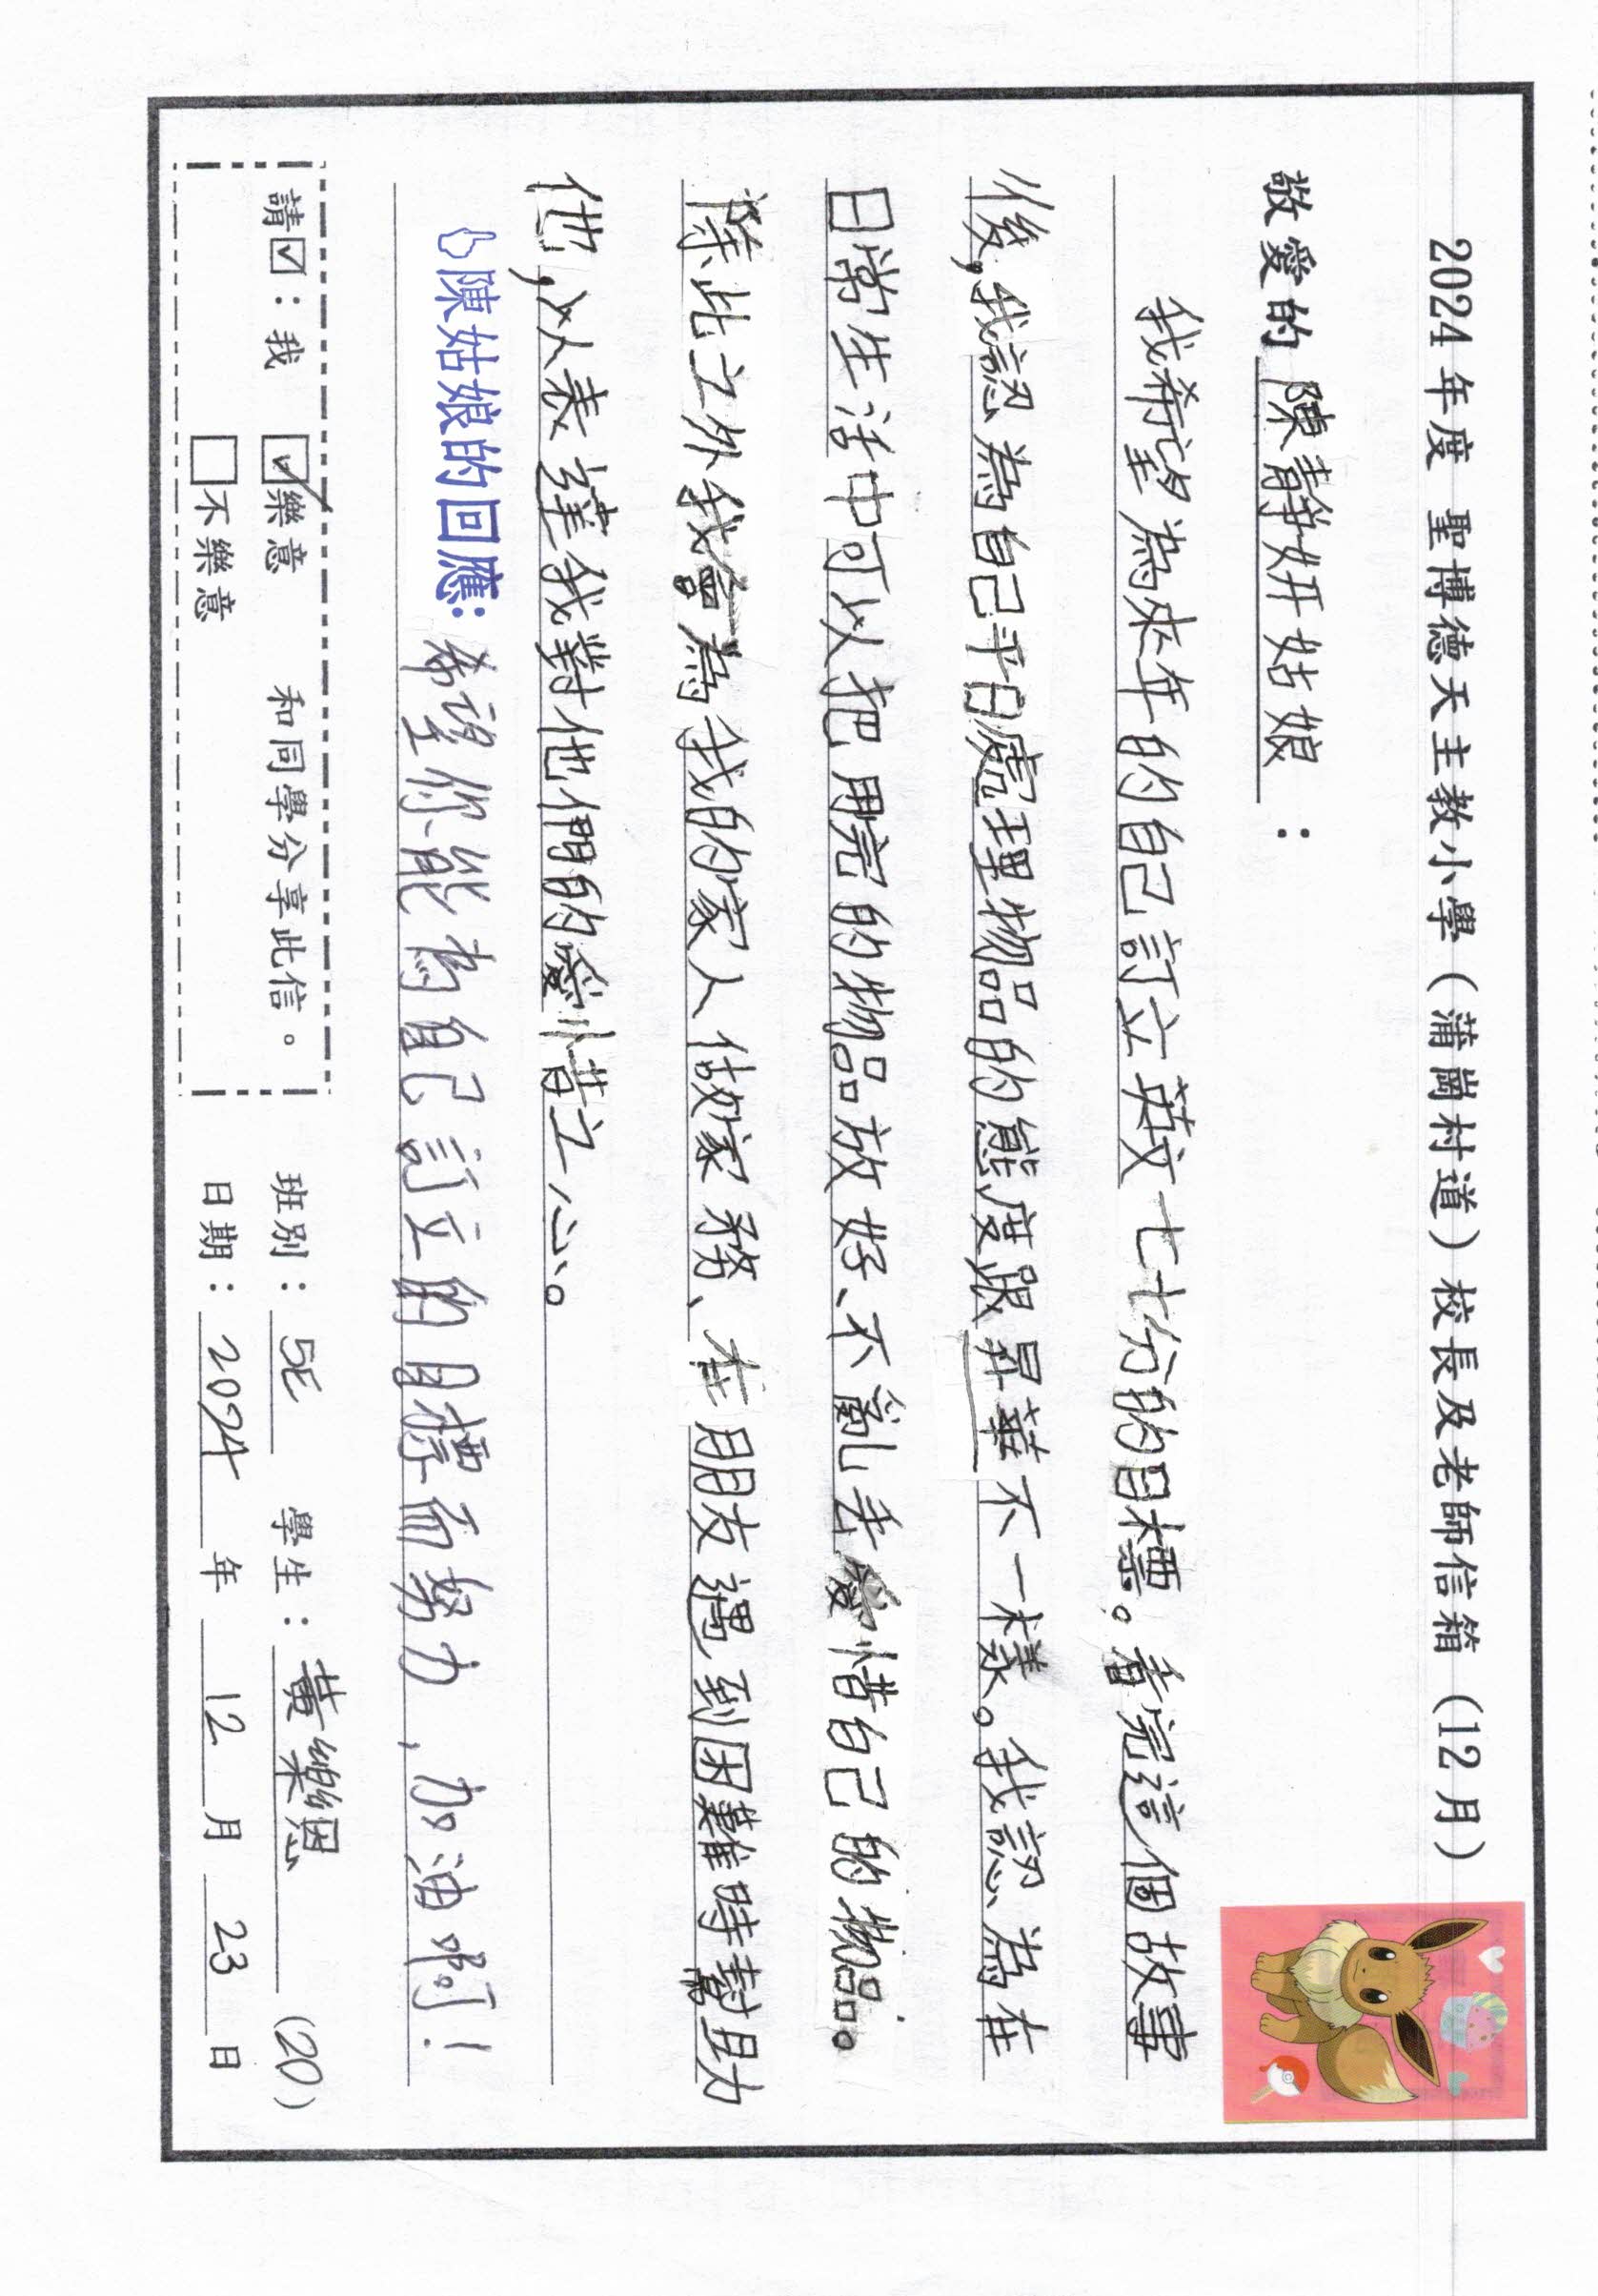 2024年度 聖博德天主教小學（蒲崗村道）校長及老師信箱（12月）
敬愛的 陳靜妍姑娘：
我希望為來年的自己訂立英文七十七分的目標。看完這個故事
後，我認為自己平日處理物品的態度跟昇華不一樣。我認為在
日常生活中可以把用完的物品放好、不亂丟愛惜自己的物品。
除此之外我會為我的家人做家務、在朋友遇到困難時幫助
他，以表達我對他們的愛惜之心。
陳姑娘的回應：希望你能為自己訂立的目標而努力，加油啊！
請☑：我 ☑樂意 和同學分享此信。
□不樂意
班別：5E 學生：黃樂恩 (20)
日期：2024年12月23日